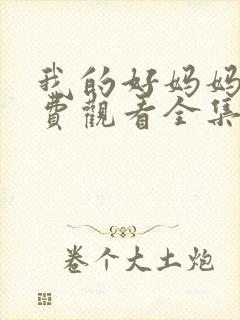 我的好妈妈
费觀看全集
卷个大土炮